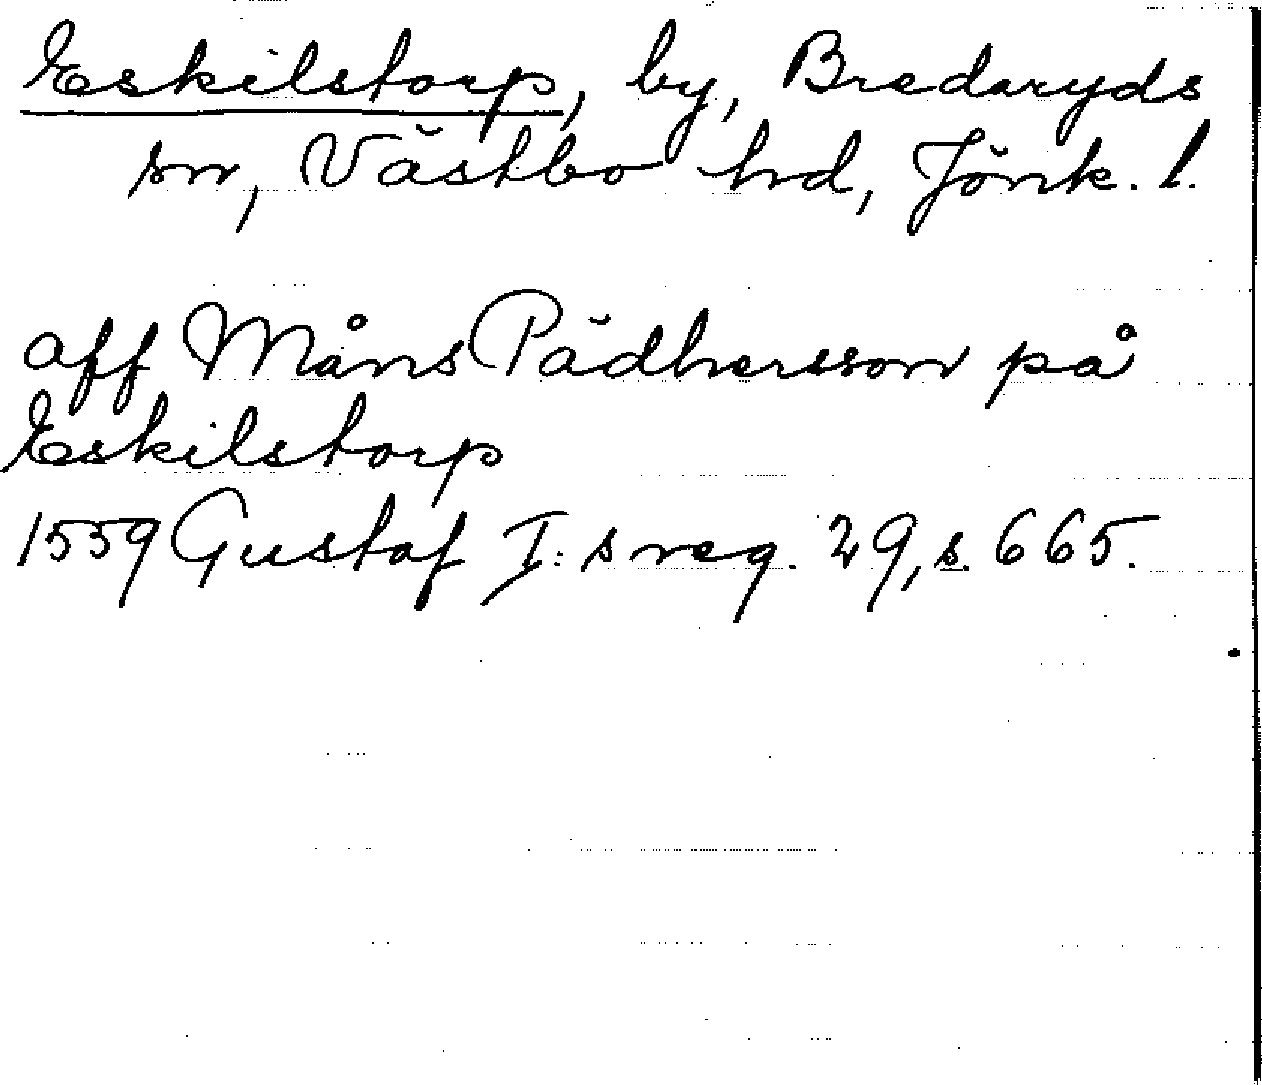 Eskilstorp, by, Bredaryds
sn, Västbo hd, Jönk. l.
aff Måns Pädhersson på
Eskilstorp
1559 Gustaf I:s reg. 29, s. 665.